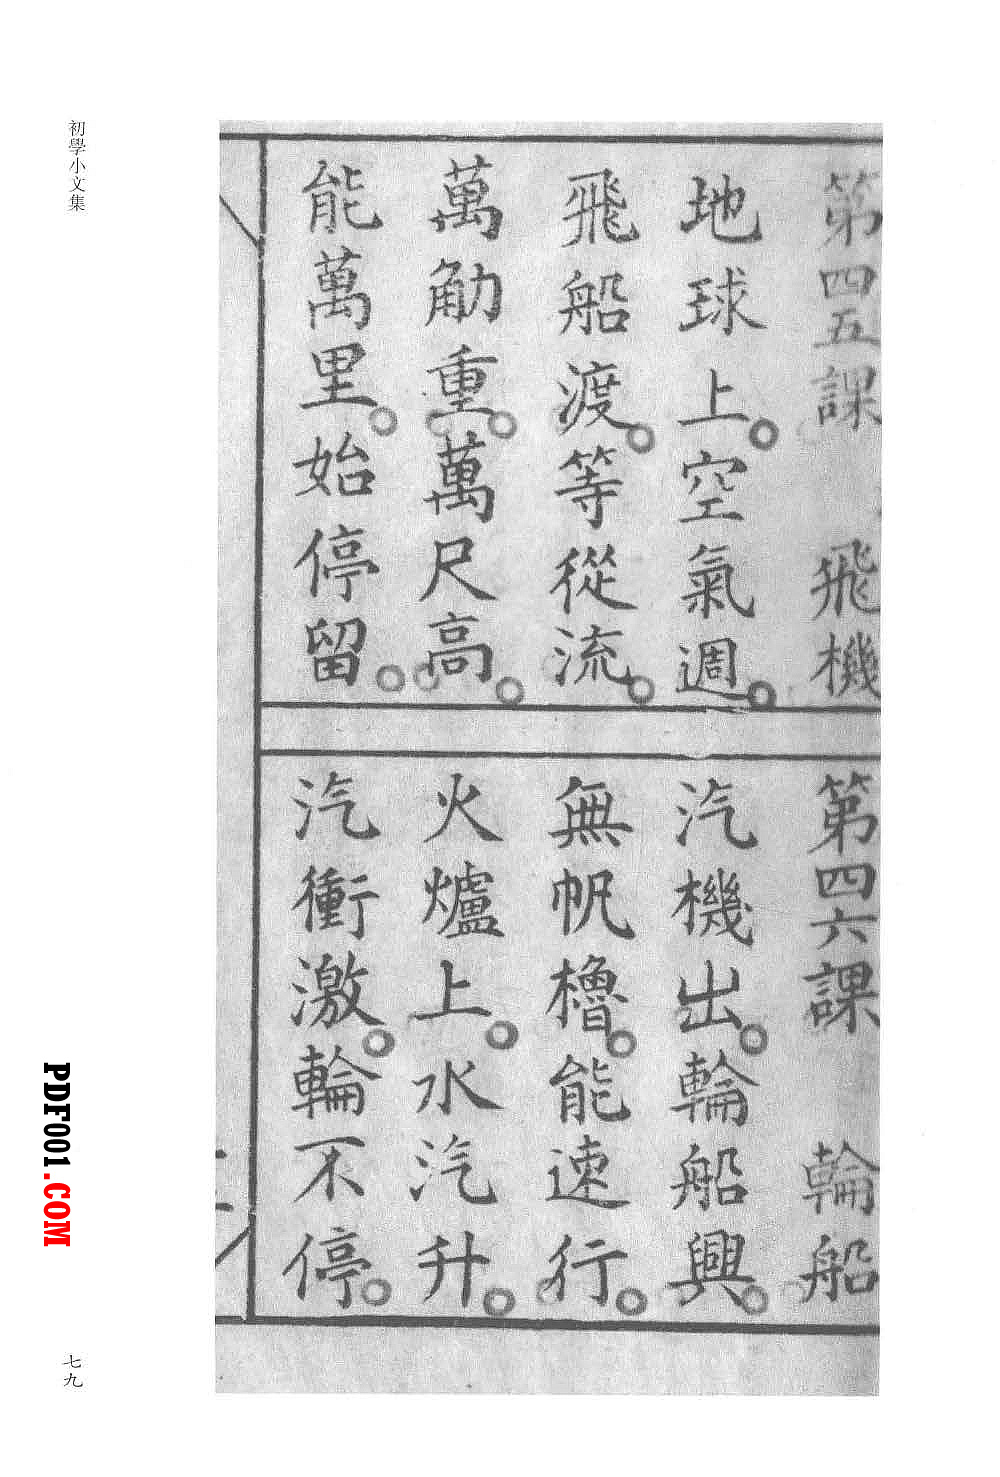 初學小文集
第四五課 飛機
地球上。空氣週。
飛船渡。等從流。
萬觔重。萬尺高。
能萬里。始停留。
第四六課 輪船
汽機出。輪船興。
無帆櫓。能速行。
火爐上。水汽升。
汽衝激。輪不停。
七九
PDF001.COM